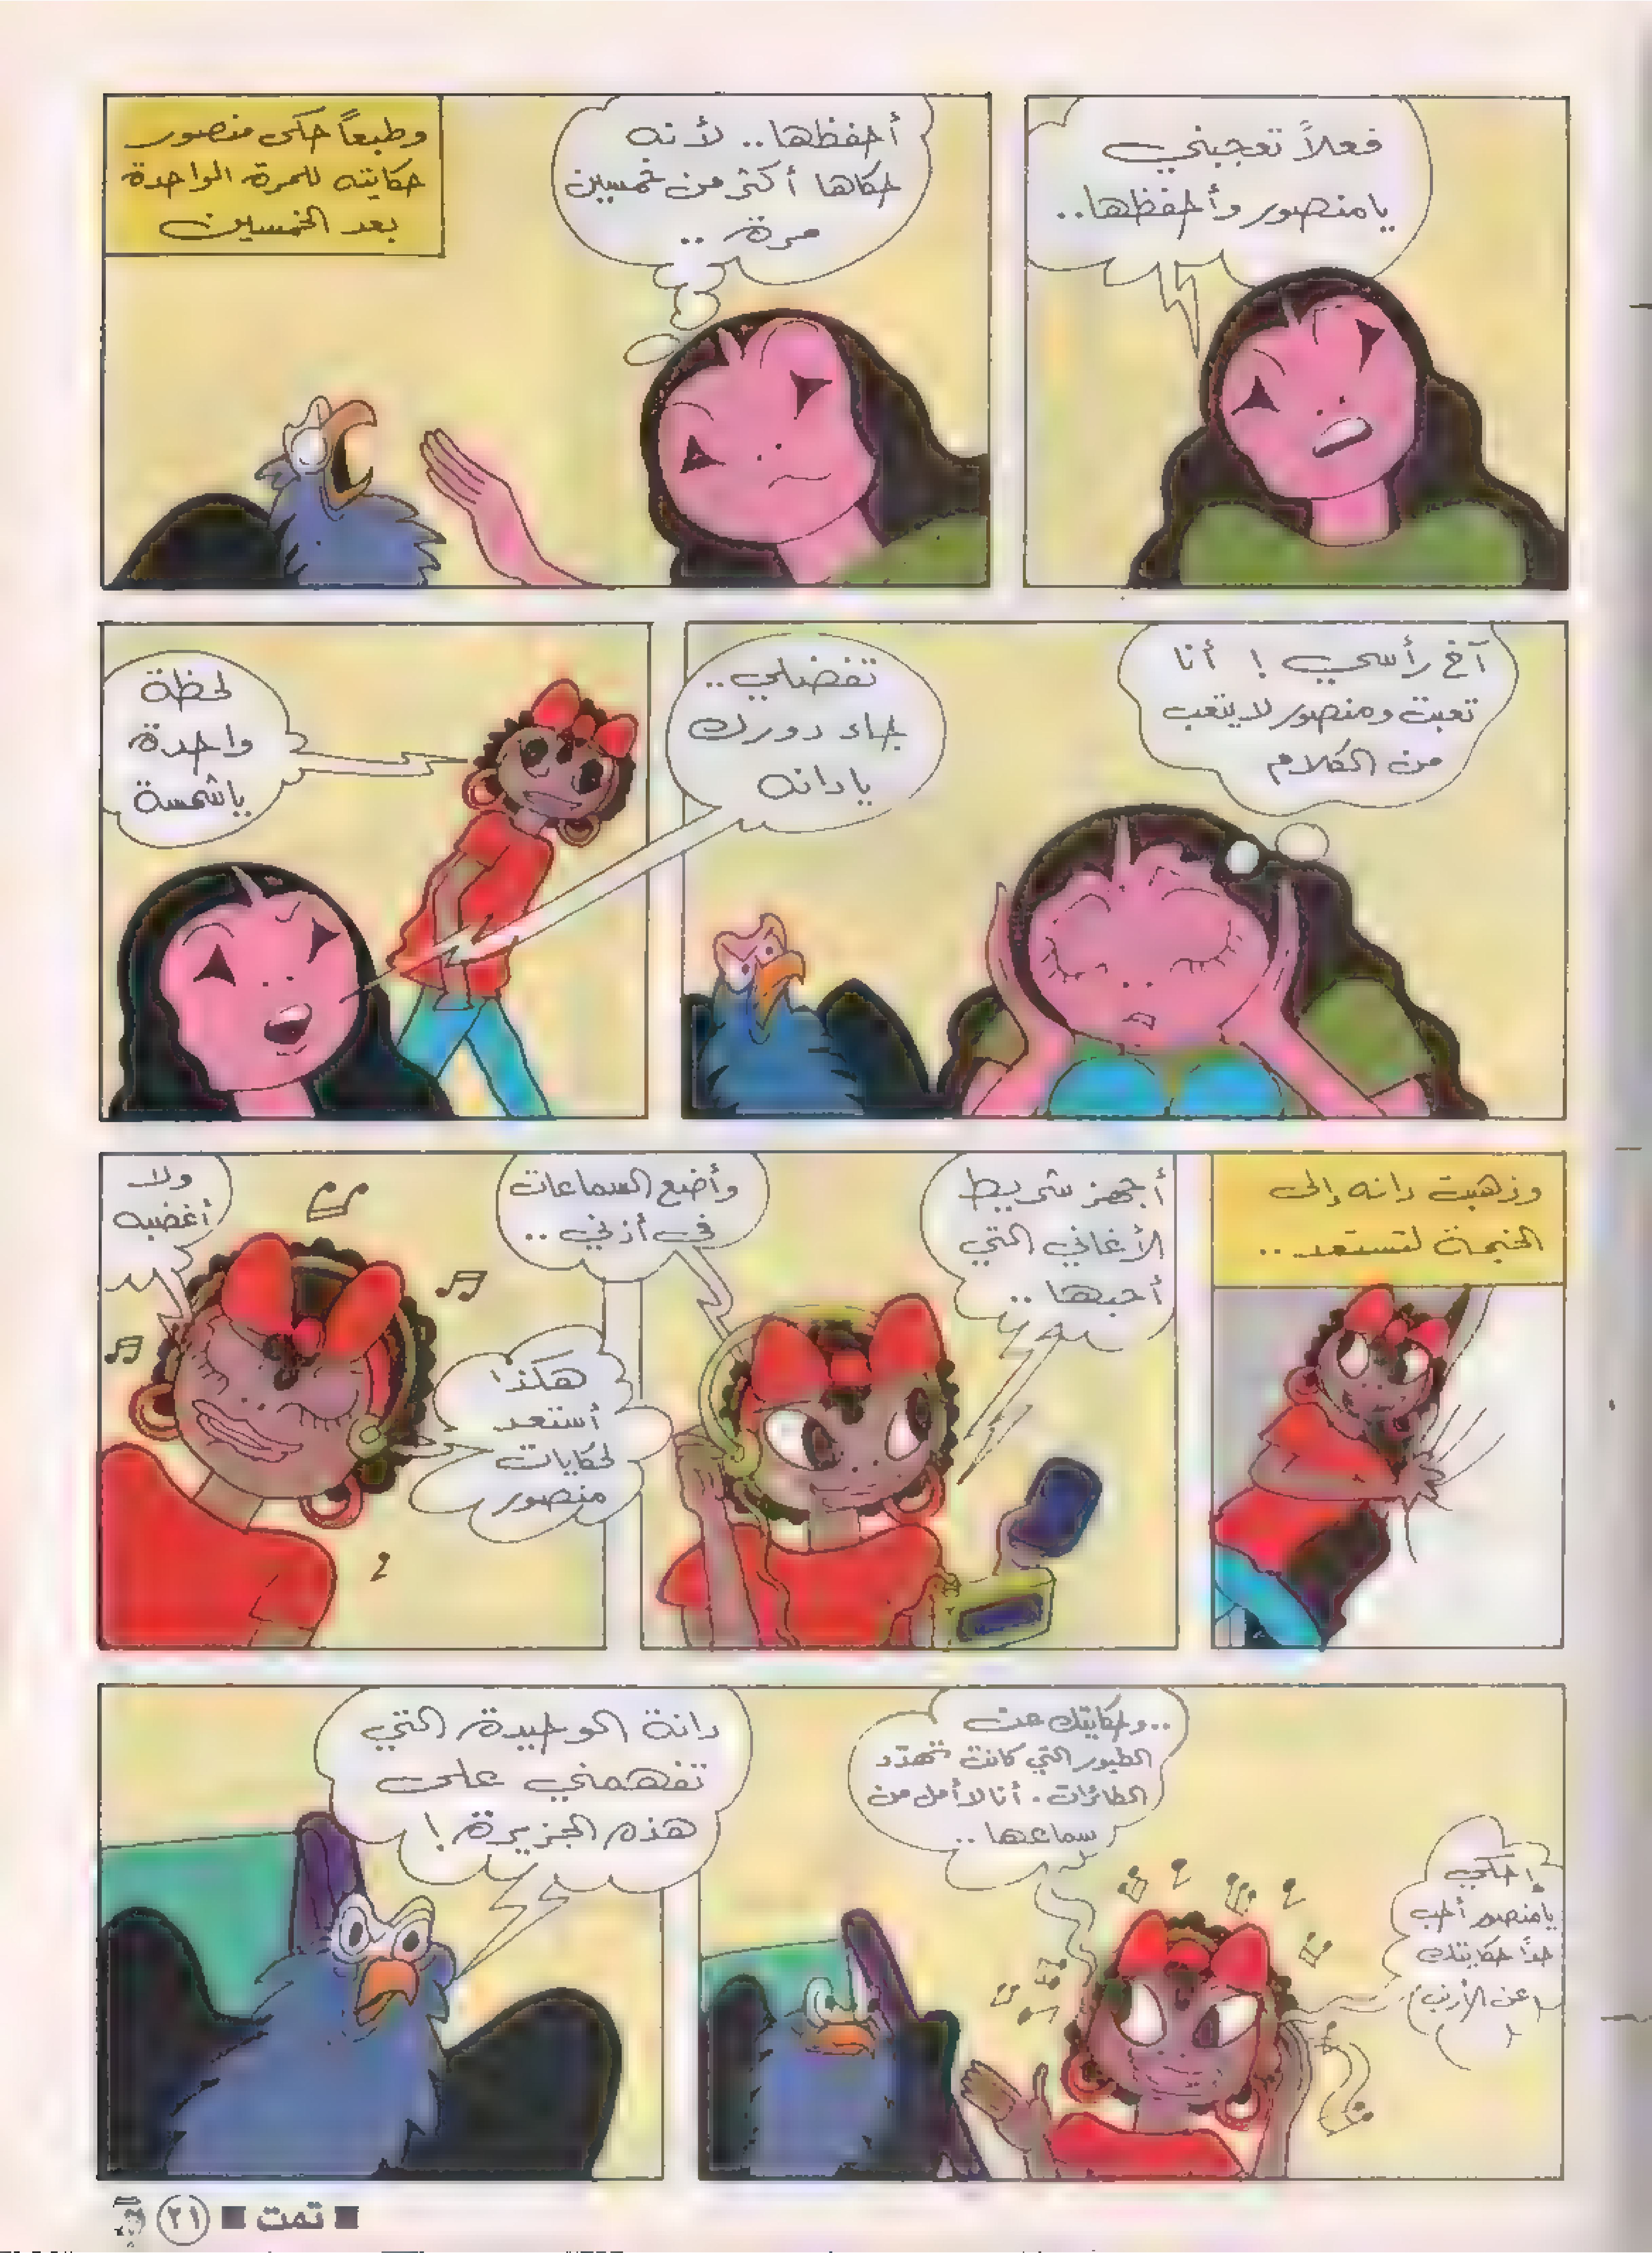 فعلاً تعجبني
يا منصور وأحفظها..
أحفظها.. لأنه
حكاها أكثر من خمسين
مرة ..
وطبعاً حكى منصور
حكايته للمرة الواحدة
بعد الخمسين
آخ رأسي ! أنا
تعبت ومنصور لا يتعب
من الكلام
تفضلي..
جاء دورك
يا دانه
لحظة
واحدة
يا شمسة
وذهبت دانه إلى
الخيمة لتستعد ..
أجهز شريط
الأغاني التي
أحبها ..
وأضع السماعات
في أذني ..
هكذا
أستعد
لحكايات
منصور
ولا
أغضبه
إحكي
يا منصور أحب
جدًا حكايتك
عن الأرنب
..وحكايتك عن
الطيور التي كانت تهدد
الطائرات. أنا لا أمل من
سماعها..
دانة الوحيدة التي
تفهمني على
هذه الجزيرة !
■ تمت ■ ٢١